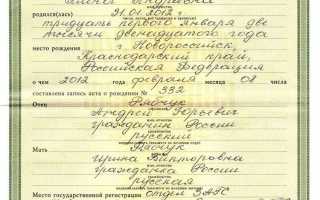 Андреевна
родился(лась) 31.01.2012 г.
тридцать первого января две
тысячи двенадцатого года
место рождения г. Новороссийск,
Краснодарский край,
Российская Федерация
о чем 2012 года февраля месяца 08 числа
составлена запись акта о рождении № 332
Отец
Андрей Юрьевич
гражданин России
русский
Мать
Ирина Викторовна
гражданка России
русская
Место государственной регистрации отдел ЗАГС